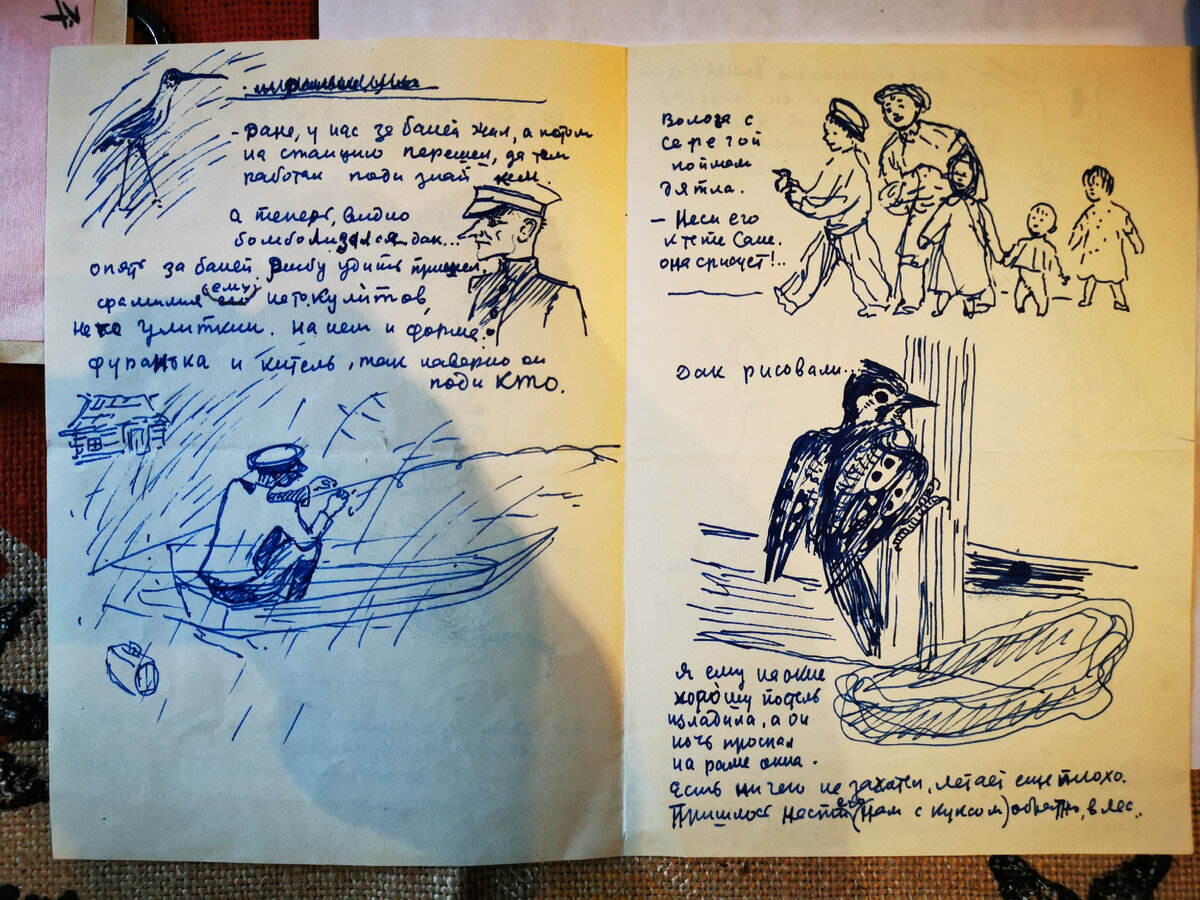 - Ране, у нас за баней жил, а потом
на станцию перешел, да там
работал поди знай кем.
а теперь, видно
дак...
опять за баней рыбу удить пришел.
фамилия ему не то Кулитов,
не то Улиткин. на нем и форма:
фуранька и китель, так наверно он
поди КТО.
Володя с
Серегой
поймал
дятла.
- Неси его
к тете Саше.
она срисует!..
Дак рисовали...
Я ему на окне
хорошу постель
изладила, а он
ночь проспал
на раме окна.
Есть ничего не захотел, летает еще плохо.
Пришлось нести его (нам с Куксом) обратно, в лес..